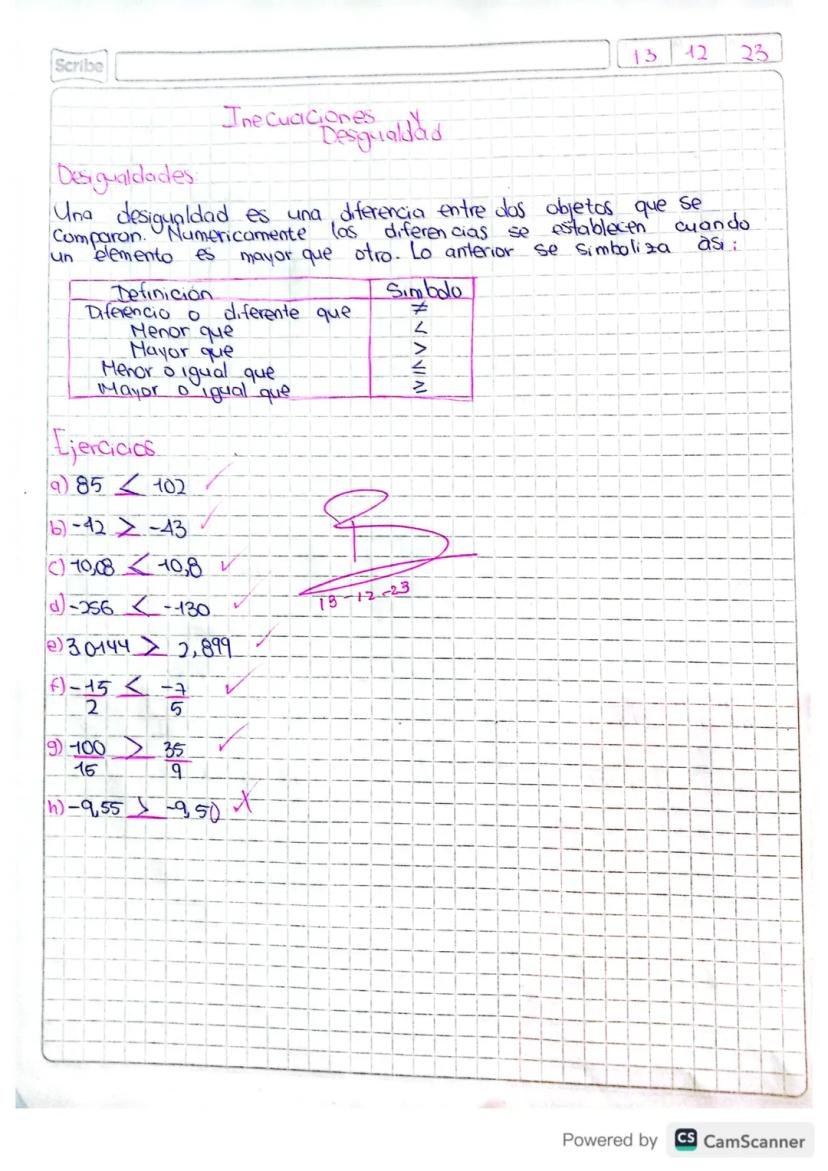 Scribe
13 12 23
Inecuaciones y
Desgualdad
Desigualdades:
Una desigualdad es una diferencia entre dos objetos que se
comparan. Numericamente las diferencias se establecen cuando
un elemento es mayor que otro. Lo anterior se simboliza asi:
Definición Simbolo
Diferencia o diferente que ≠
Menor que <
Mayor que >
Menor o igual que ≤
Mayor o igual que ≥
Ejercicios
a) 85 < 102 ✓
b) -12 > -13 ✓
c) 10,08 < 10,8 ✓
13-12-23
d) -256 < -130 ✓
e) 3,0144 > 2,899 ✓
f) -15/2 < -7/5 ✓
g) 100/15 > 35/9 ✓
h) -9,55 > -9,50 X
Powered by CS CamScanner